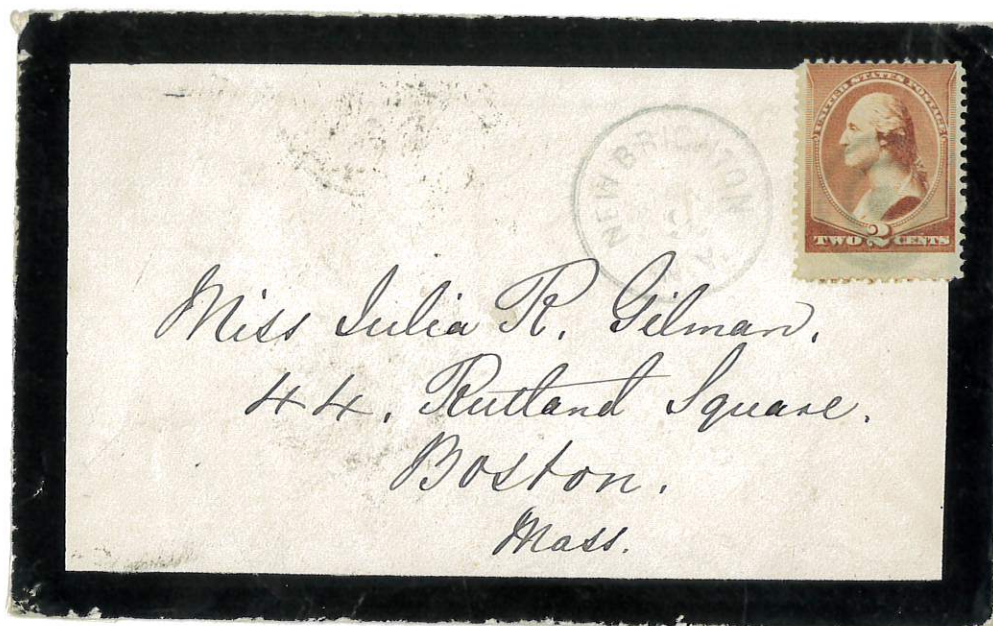 UNITED STATES POSTAGE
TWO 2 CENTS
NEW BRIGHTON
Miss Julia R. Gilman.
44. Rutland Square.
Boston.
Mass.